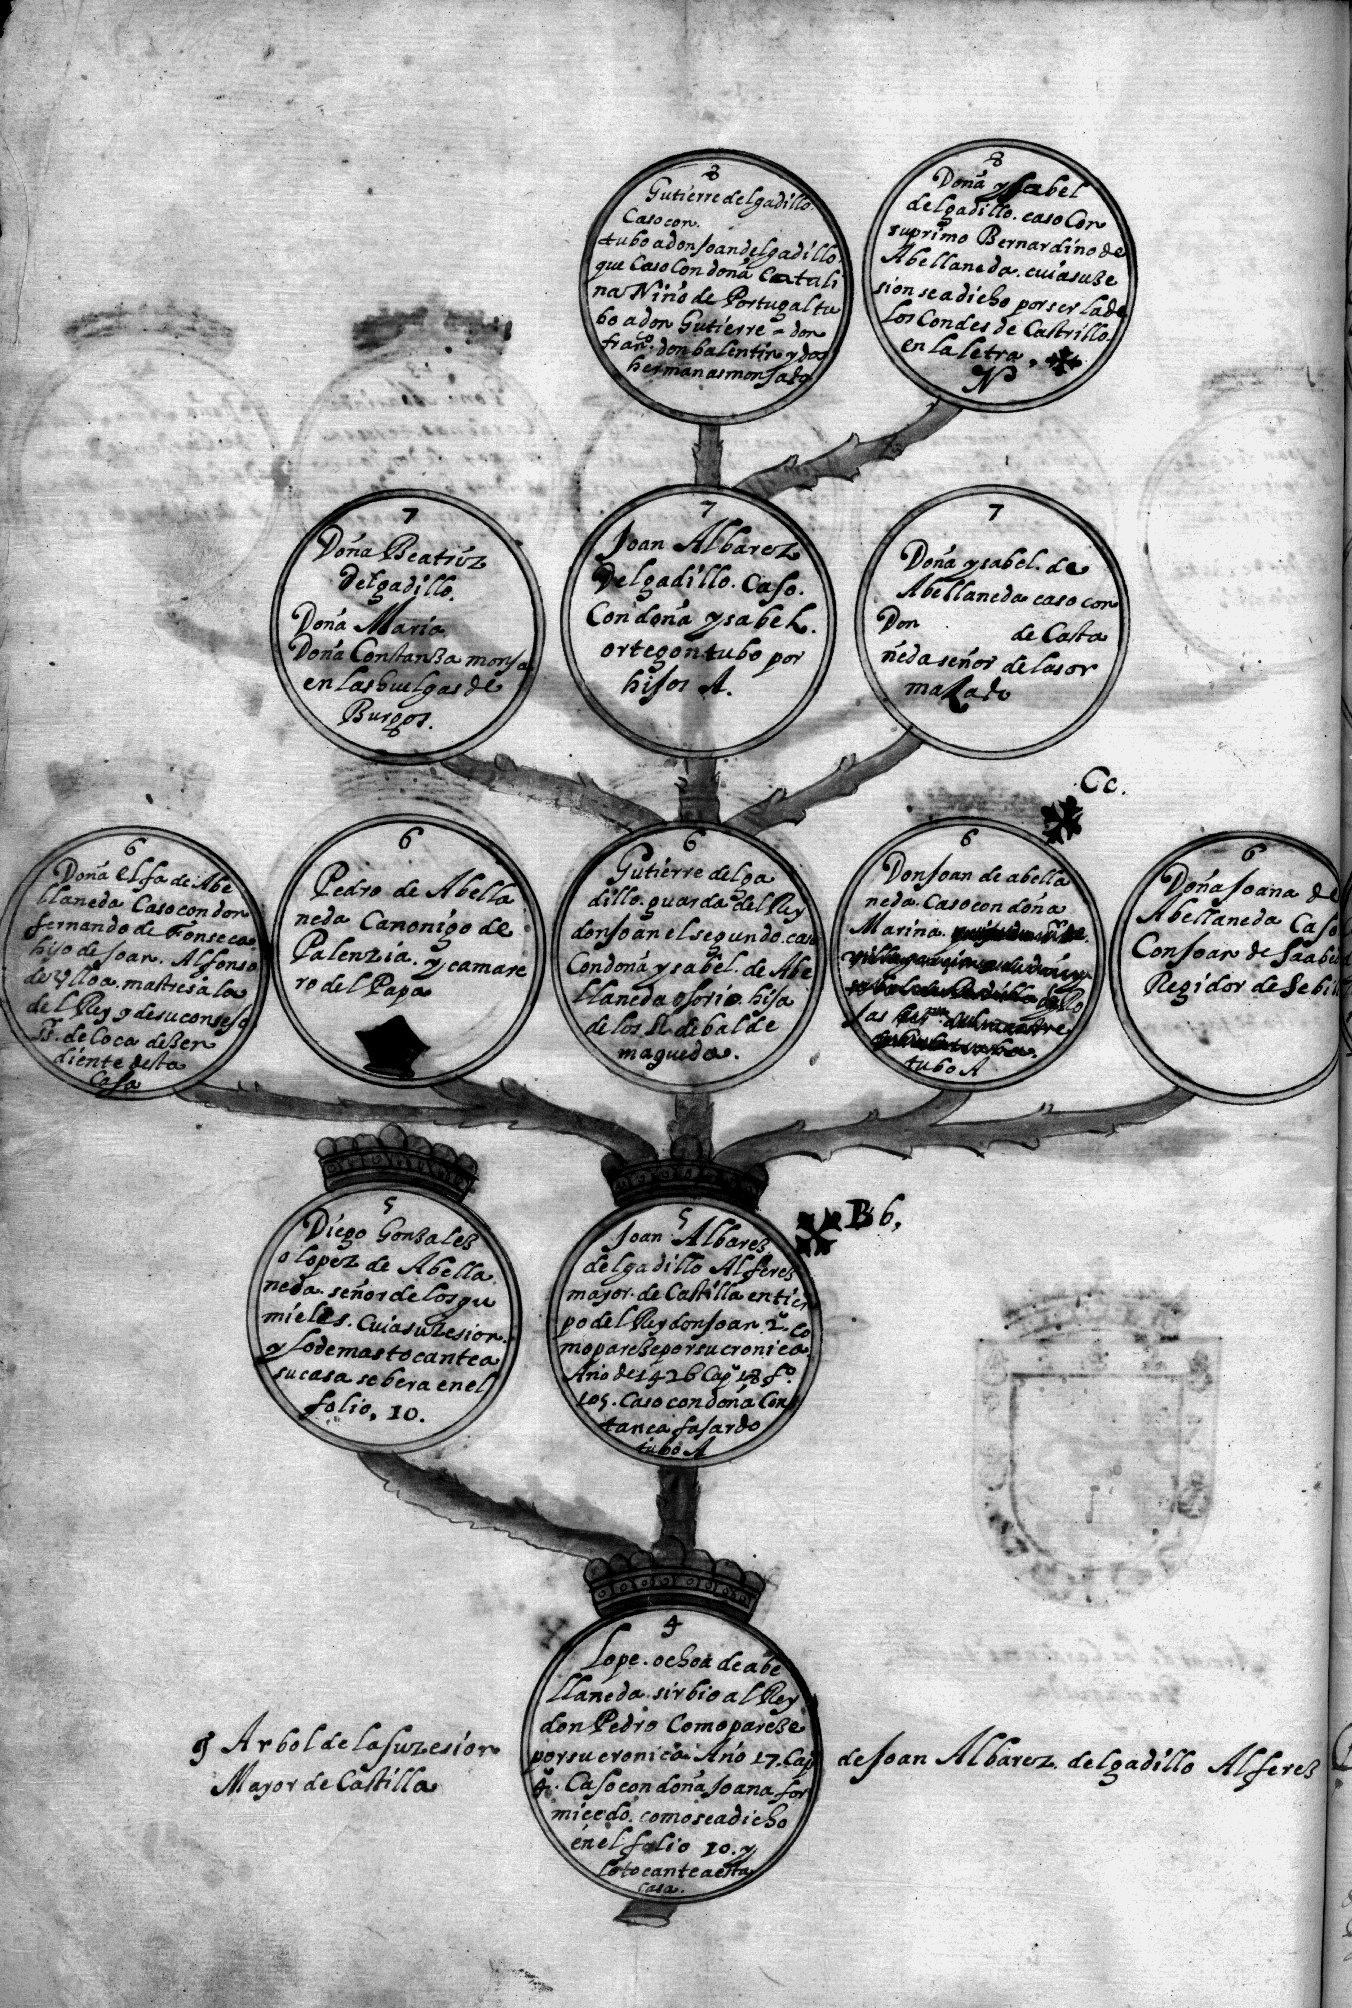 8
Gutierre delgadillo.
Caso con.
tubo a don Joan delgadillo.
que Caso Con doña Catali
na Niño de Portugal tu
bo a don Gutierre – don
franco. don balentin y dos
hermanas monjado
8
Doña ysabel
delgadillo. caso Con
su primo Bernardino de
Abellaneda. cuia suze
sion se a dicho por ser la de
los Condes de Castrillo
en la letra,
N
7
Doña Beatriz
delgadillo.
Doña Maria
Doña Constanza monja
en las huelgas de
Burgos.
7
Joan Albarez
Delgadillo. Caso.
Con doña ysabel.
ortegon tubo por
hijos A.
7
Doña ysabel. de
Abellaneda caso con
Don de Casta
ñeda señor de las or
mazado
Cc.
6
Doña elfa de Abe
llaneda Caso con don
fernando de Fonseca
hijo de Joan. Alfonso
de Ulloa. mastresala
del Rey y de su consejo
Sr. de Coca dezen
diente desta
Casa
6
Pedro de Abella
neda Canonigo de
Palenzia. y camare
ro del Papa
6
Gutierre delga
dillo. guarda del Rey
don Joan el segundo. caso
Con doña ysabel. de Abe
llaneda osorio hija
de los Srs. de balde
maqueda.
6
Don Joan de abella
neda. Caso con doña
Marina.
tubo A
6
Doña Joana de
Abellaneda Caso
Con Joan de Saabed
Regidor de Sebill
5
Diego Gonzalez
o lopez de Abella
neda. señor de los gu
mieles. Cuia suzesion.
y lo demas tocante a
su casa se bera en el
folio, 10.
5
Joan Albarez
delgadillo Alferez
mayor. de Castilla en tiem
po del Rey don Joan. 2º. Co
mo pareze por su cronica
Año de 1426 Capº 18 fº.
105. Caso con doña Cons
tanca fajardo
tubo A
Bb,
4
Lope. ochoa de abe
llaneda. sirbio al Rey
don Pedro Como pareze
por su cronica. Año 17. Cap
4. Caso con doña Joana for
micedo. como se a dicho
en el folio 10. y
lo tocante a esta
casa.
Arbol de la suzesion de Joan Albarez. delgadillo Alferez
Mayor de Castilla